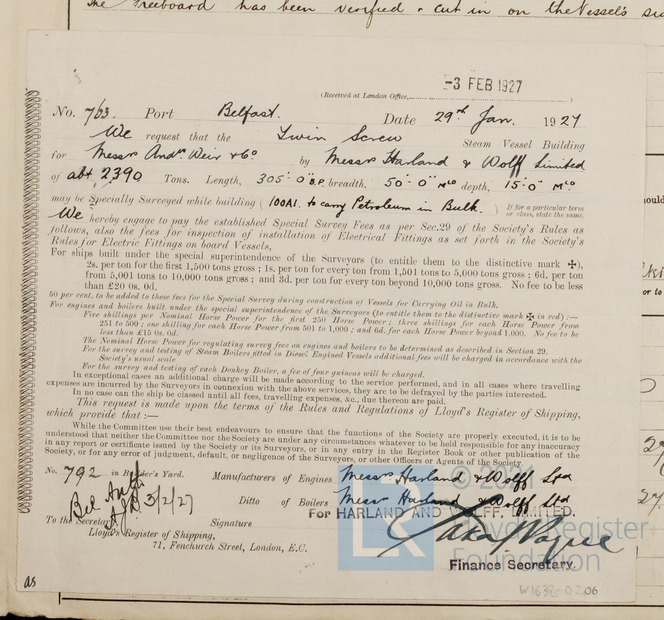 the Freeboard has been verified & cut in on the Vessel's
-3 FEB 1927
(Received at London Office,
No. 763. Port Belfast. Date 29th Jan. 1927
We request that the Twin Screw Steam Vessel Building
for Messrs Andw Weir & Co by Messrs Harland & Wolff Limited
of abt 2390 Tons. Length, 305'-0" B.P. breadth, 50'-0" Mld depth, 15'-0" Mld
may be Specially Surveyed while building (100A1. to carry Petroleum in Bulk.) If for a particular term or class, state the same.
We hereby engage to pay the established Special Survey Fees as per Sec. 29 of the Society's Rules as
follows, also the fees for inspection of installation of Electrical Fittings as set forth in the Society's
Rules for Electric Fittings on board Vessels.
For ships built under the special superintendence of the Surveyors (to entitle them to the distinctive mark ✠),
2s. per ton for the first 1,500 tons gross ; 1s. per ton for every ton from 1,501 to 5,000 tons gross ; 6d. per ton
from 5,001 tons to 10,000 tons gross ; and 3d. per ton for every ton beyond 10,000 tons gross. No fee to be less
than £20 0s. 0d.
50 per cent. to be added to these fees for the Special Survey during construction of Vessels for Carrying Oil in Bulk.
For engines and boilers built under the special superintendence of the Surveyors (to entitle them to the distinctive mark ✠ in red) :—
Five shillings per Nominal Horse Power for the first 250 Horse Power ; three shillings for each Horse Power from
251 to 500 ; one shilling for each Horse Power from 501 to 1,000 ; and 6d. for each Horse Power beyond 1,000. No fee to be
less than £15 0s. 0d.
The Nominal Horse Power for regulating survey fees on engines and boilers to be determined as described in Section 29.
For the survey and testing of Steam Boilers fitted in Diesel Engined Vessels additional fees will be charged in accordance with the
Society's usual scale
For the survey and testing of each Donkey Boiler, a fee of four guineas will be charged.
In exceptional cases an additional charge will be made according to the service performed, and in all cases where travelling
expenses are incurred by the Surveyors in connection with the above services, they are to be defrayed by the parties interested.
In no case can the ship be classed until all fees, travelling expenses, &c., due thereon are paid.
This request is made upon the terms of the Rules and Regulations of Lloyd's Register of Shipping,
which provide that :—
While the Committee use their best endeavours to ensure that the functions of the Society are properly executed, it is to be
understood that neither the Committee nor the Society are under any circumstances whatever to be held responsible for any inaccuracy
in any report or certificate issued by the Society or its Surveyors, or in any entry in the Register Book or other publication of the
Society, or for any error of judgment, default, or negligence of the Surveyors, or other Officers or Agents of the Society.
No. 792 in Builder's Yard. Manufacturers of Engines Messrs Harland & Wolff Ltd
Ditto of Boilers Messrs Harland & Wolff Ltd
3/2/27
FOR HARLAND AND WOLFF, LIMITED.
To the Secretary, Signature
Lloyd's Register of Shipping,
71, Fenchurch Street, London, E.C.
Finance Secretary.
Lloyd's Register
Foundation
W1638-0206